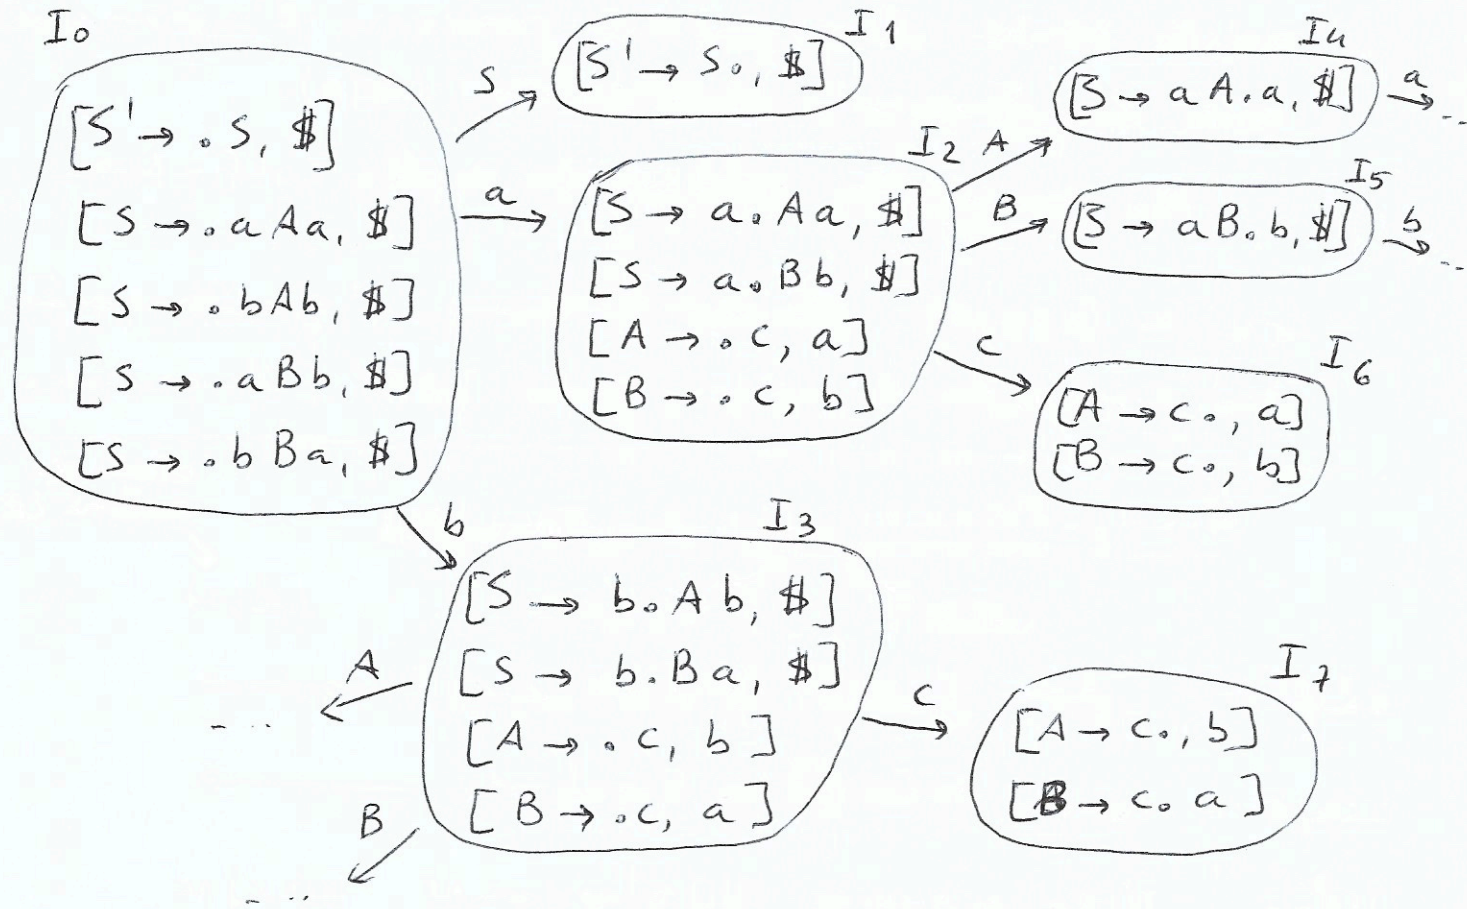 I0
[S' → . S, $]
[S → . a A a, $]
[S → . b A b, $]
[S → . a B b, $]
[S → . b B a, $]
S
I1
[S' → S . , $]
a
I2
[S → a . A a, $]
[S → a . B b, $]
[A → . c, a]
[B → . c, b]
A
I4
[S → a A . a, $]
a
...
B
I5
[S → a B . b, $]
b
...
c
I6
[A → c . , a]
[B → c . , b]
b
I3
[S → b . A b, $]
[S → b . B a, $]
[A → . c, b]
[B → . c, a]
A
....
B
....
c
I7
[A → c . , b]
[B → c . a]